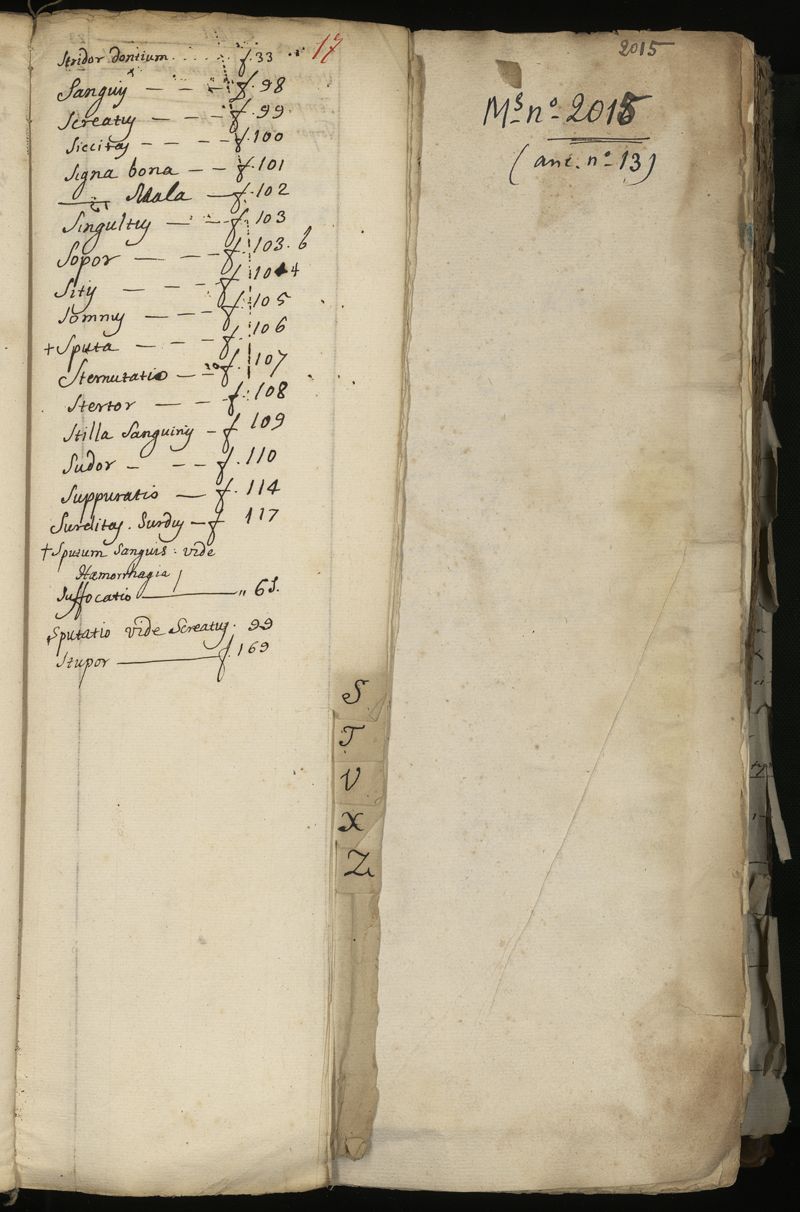 Stridor dentium f. 33 17
Sanguis - - - f. 98
Screatus - - - f. 99
Siccitas - - - - f. 100
Signa bona - - f. 101
Mala - f. 102
Singultus - - f. 103
Sopor - - - f. 103. b
Sitis - - - f. 104
Somnus - - - f. 105
+ Sputa - - - f. 106
Sternutatio - - f. 107
Stertor - - f. 108
Stilla Sanguinis - f. 109
Sudor - - - f. 110
Suppuratio - f. 114
Surditas. Surdus - f 117
+ Sputum Sanguis : vide
Hæmorrhagia /
Suffocatio ——— „ 65.
Sputatio vide Screatus. 99
Stupor ——— f. 169
S
T
V
X
Z
2015
Ms. nº. 2015
(anc. nº. 13)